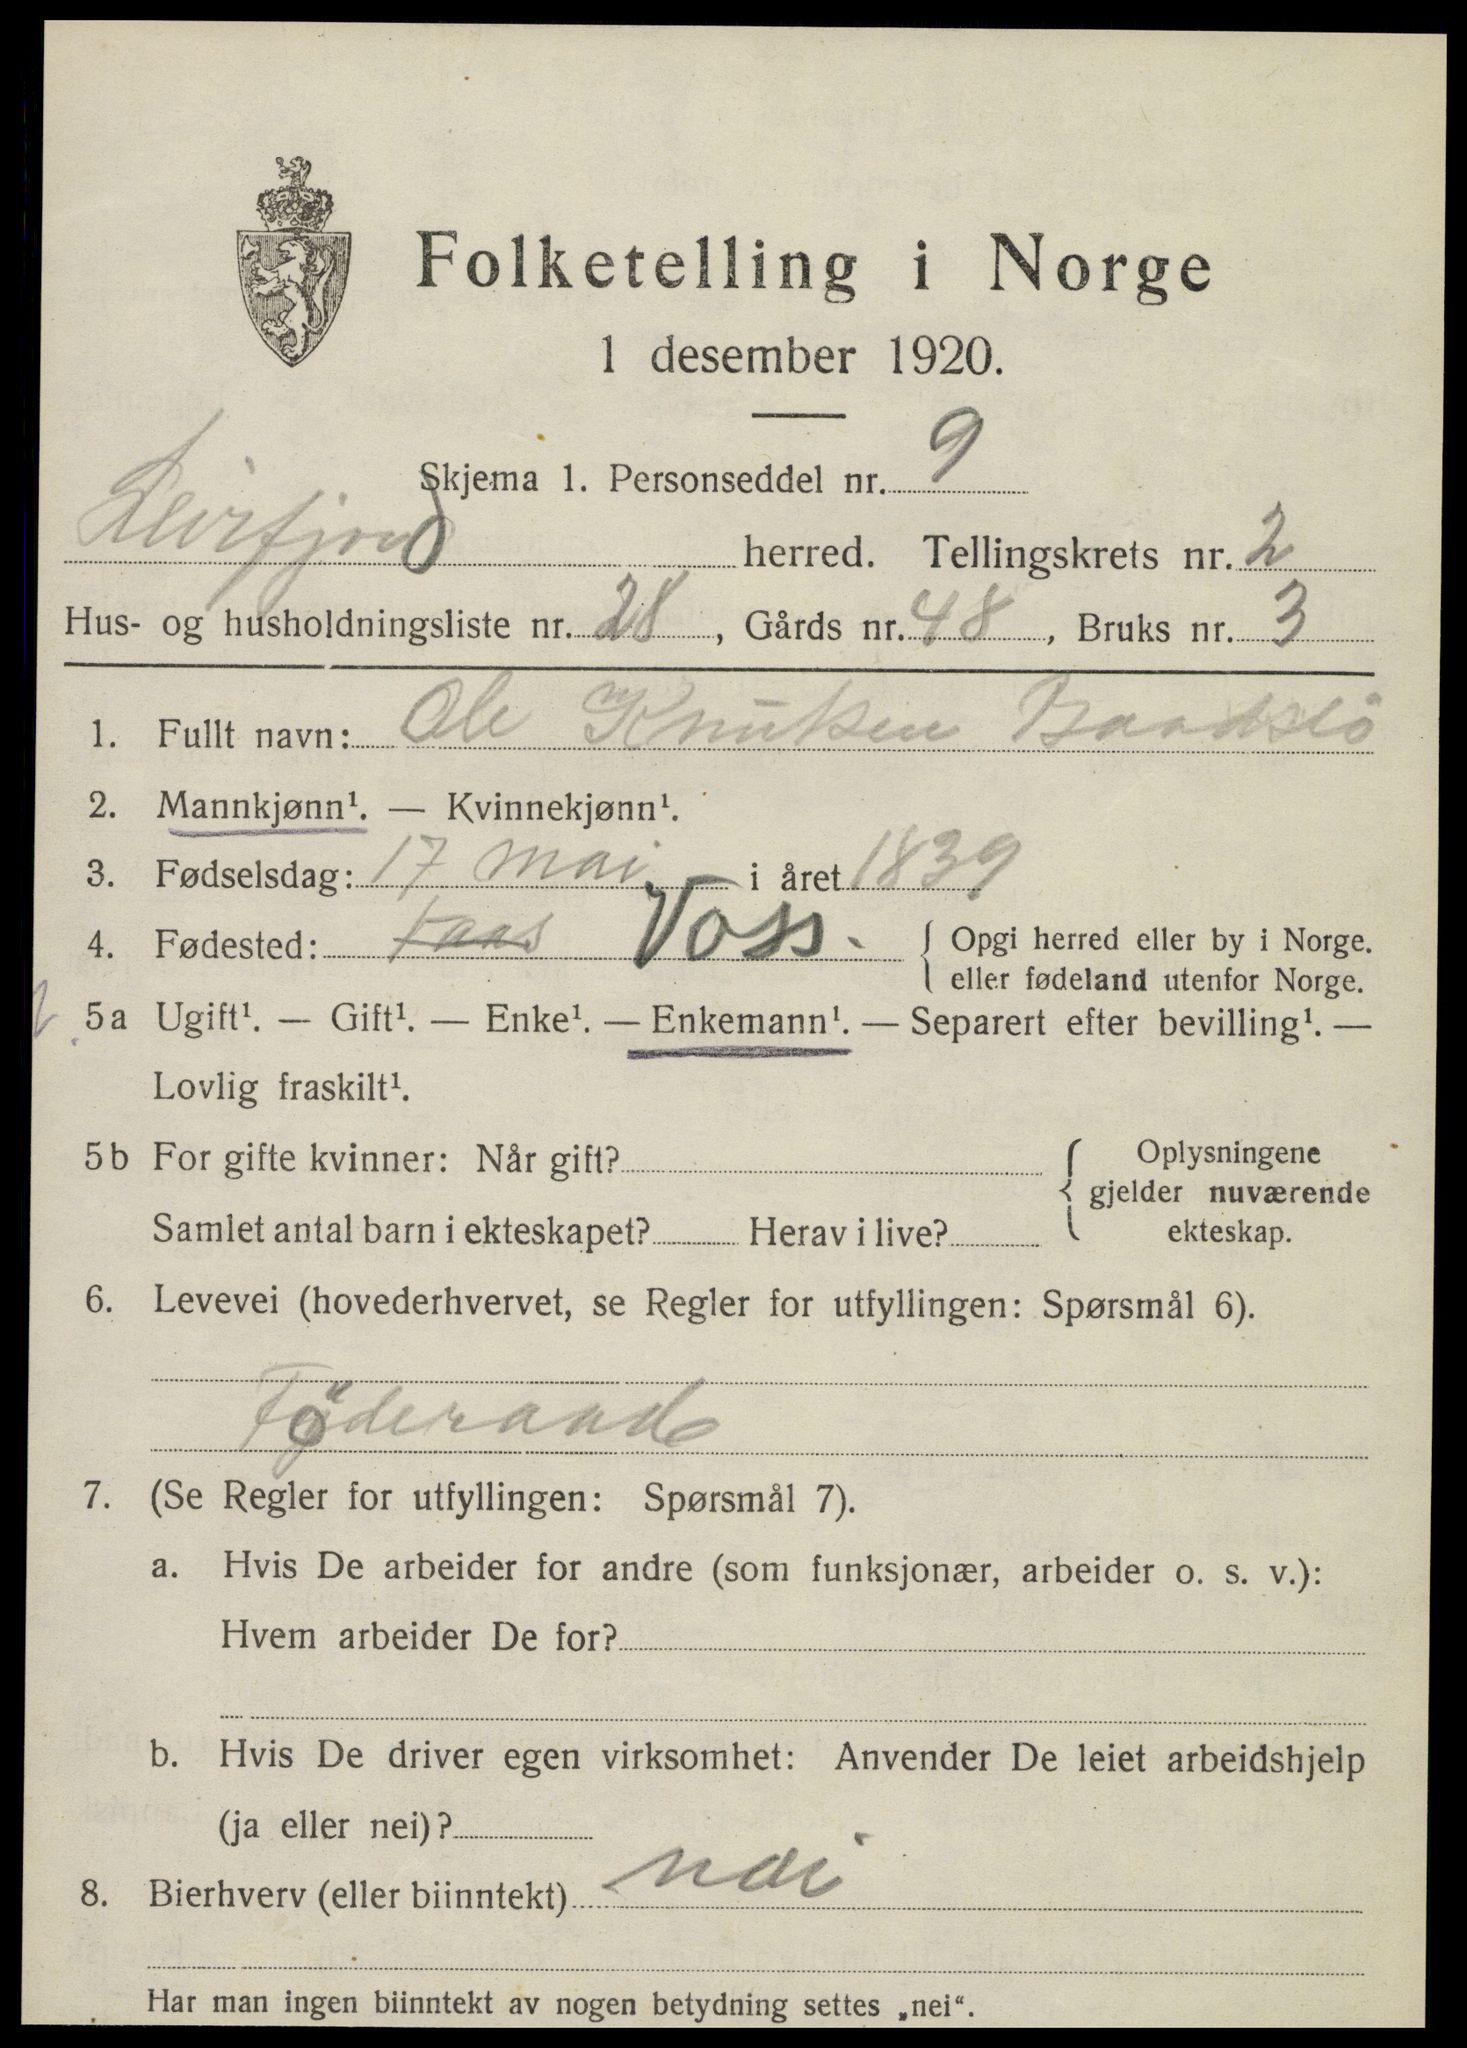 Folketelling i Norge
1 desember 1920.
Skjema 1. Personseddel nr. 9
Leirfjord herred. Tellingskrets nr. 2
Hus- og husholdningsliste nr. 28, Gårds nr. 48, Bruks nr. 3
1. Fullt navn: Ole Knutsen
2. Mannkjønn¹. — Kvinnekjønn¹.
3. Fødselsdag: 17 mai i året 1839
4. Fødested: Voss. Opgi herred eller by i Norge.
eller fødeland utenfor Norge.
5a Ugift¹. — Gift¹. — Enke¹. — Enkemann¹. — Separert efter bevilling¹. —
Lovlig fraskilt¹.
5b For gifte kvinner: Når gift? Oplysningene
gjelder nuværende
Samlet antal barn i ekteskapet? Herav i live? ekteskap.
6. Levevei (hovederhvervet, se Regler for utfyllingen: Spørsmål 6).
Føderaad
7. (Se Regler for utfyllingen: Spørsmål 7).
a. Hvis De arbeider for andre (som funksjonær, arbeider o. s. v.):
Hvem arbeider De for?
b. Hvis De driver egen virksomhet: Anvender De leiet arbeidshjelp
(ja eller nei)?
8. Bierhverv (eller biinntekt) nei
Har man ingen biinntekt av nogen betydning settes „nei“.